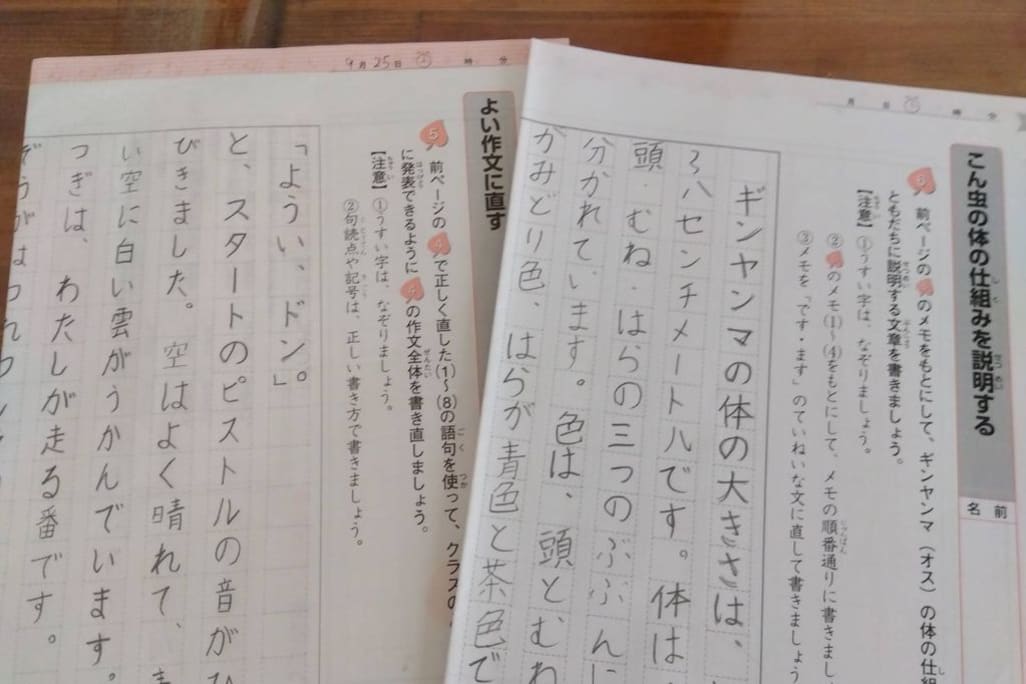 こん虫の体の仕組みを説明する
名前
月 日 時 分
6 前ページの のメモをもとにして、ギンヤンマ(オス)の体の仕組
ともだちに説明する文章を書きましょう。
【注意】①うすい字は、なぞりましょう。
② のメモ(1)〜(4)をもとにして、メモの順番通りに書きまし
③メモを「です・ます」のていねいな文に直して書きましょう
ギンヤンマの体の大きさは、
八センチメートルです。体は
頭・むね・はらの三つのぶぶんに
分かれています。色は、頭とむね
みどり色、はらが青色と茶色で
9月25日 時 分
よい作文に直す
5 前ページの 4 で正しく直した(1)〜(8)の語句を使って、クラスの
に発表できるように 4 の作文全体を書き直しましょう。
【注意】①うすい字は、なぞりましょう。
②句読点や記号は、正しい書き方で書きましょう。
「ようい、ドン。」
と、スタートのピストルの音がひ
びきました。空はよく晴れて、
い空に白い雲がうかんでいます。
つぎは、わたしが走る番です。